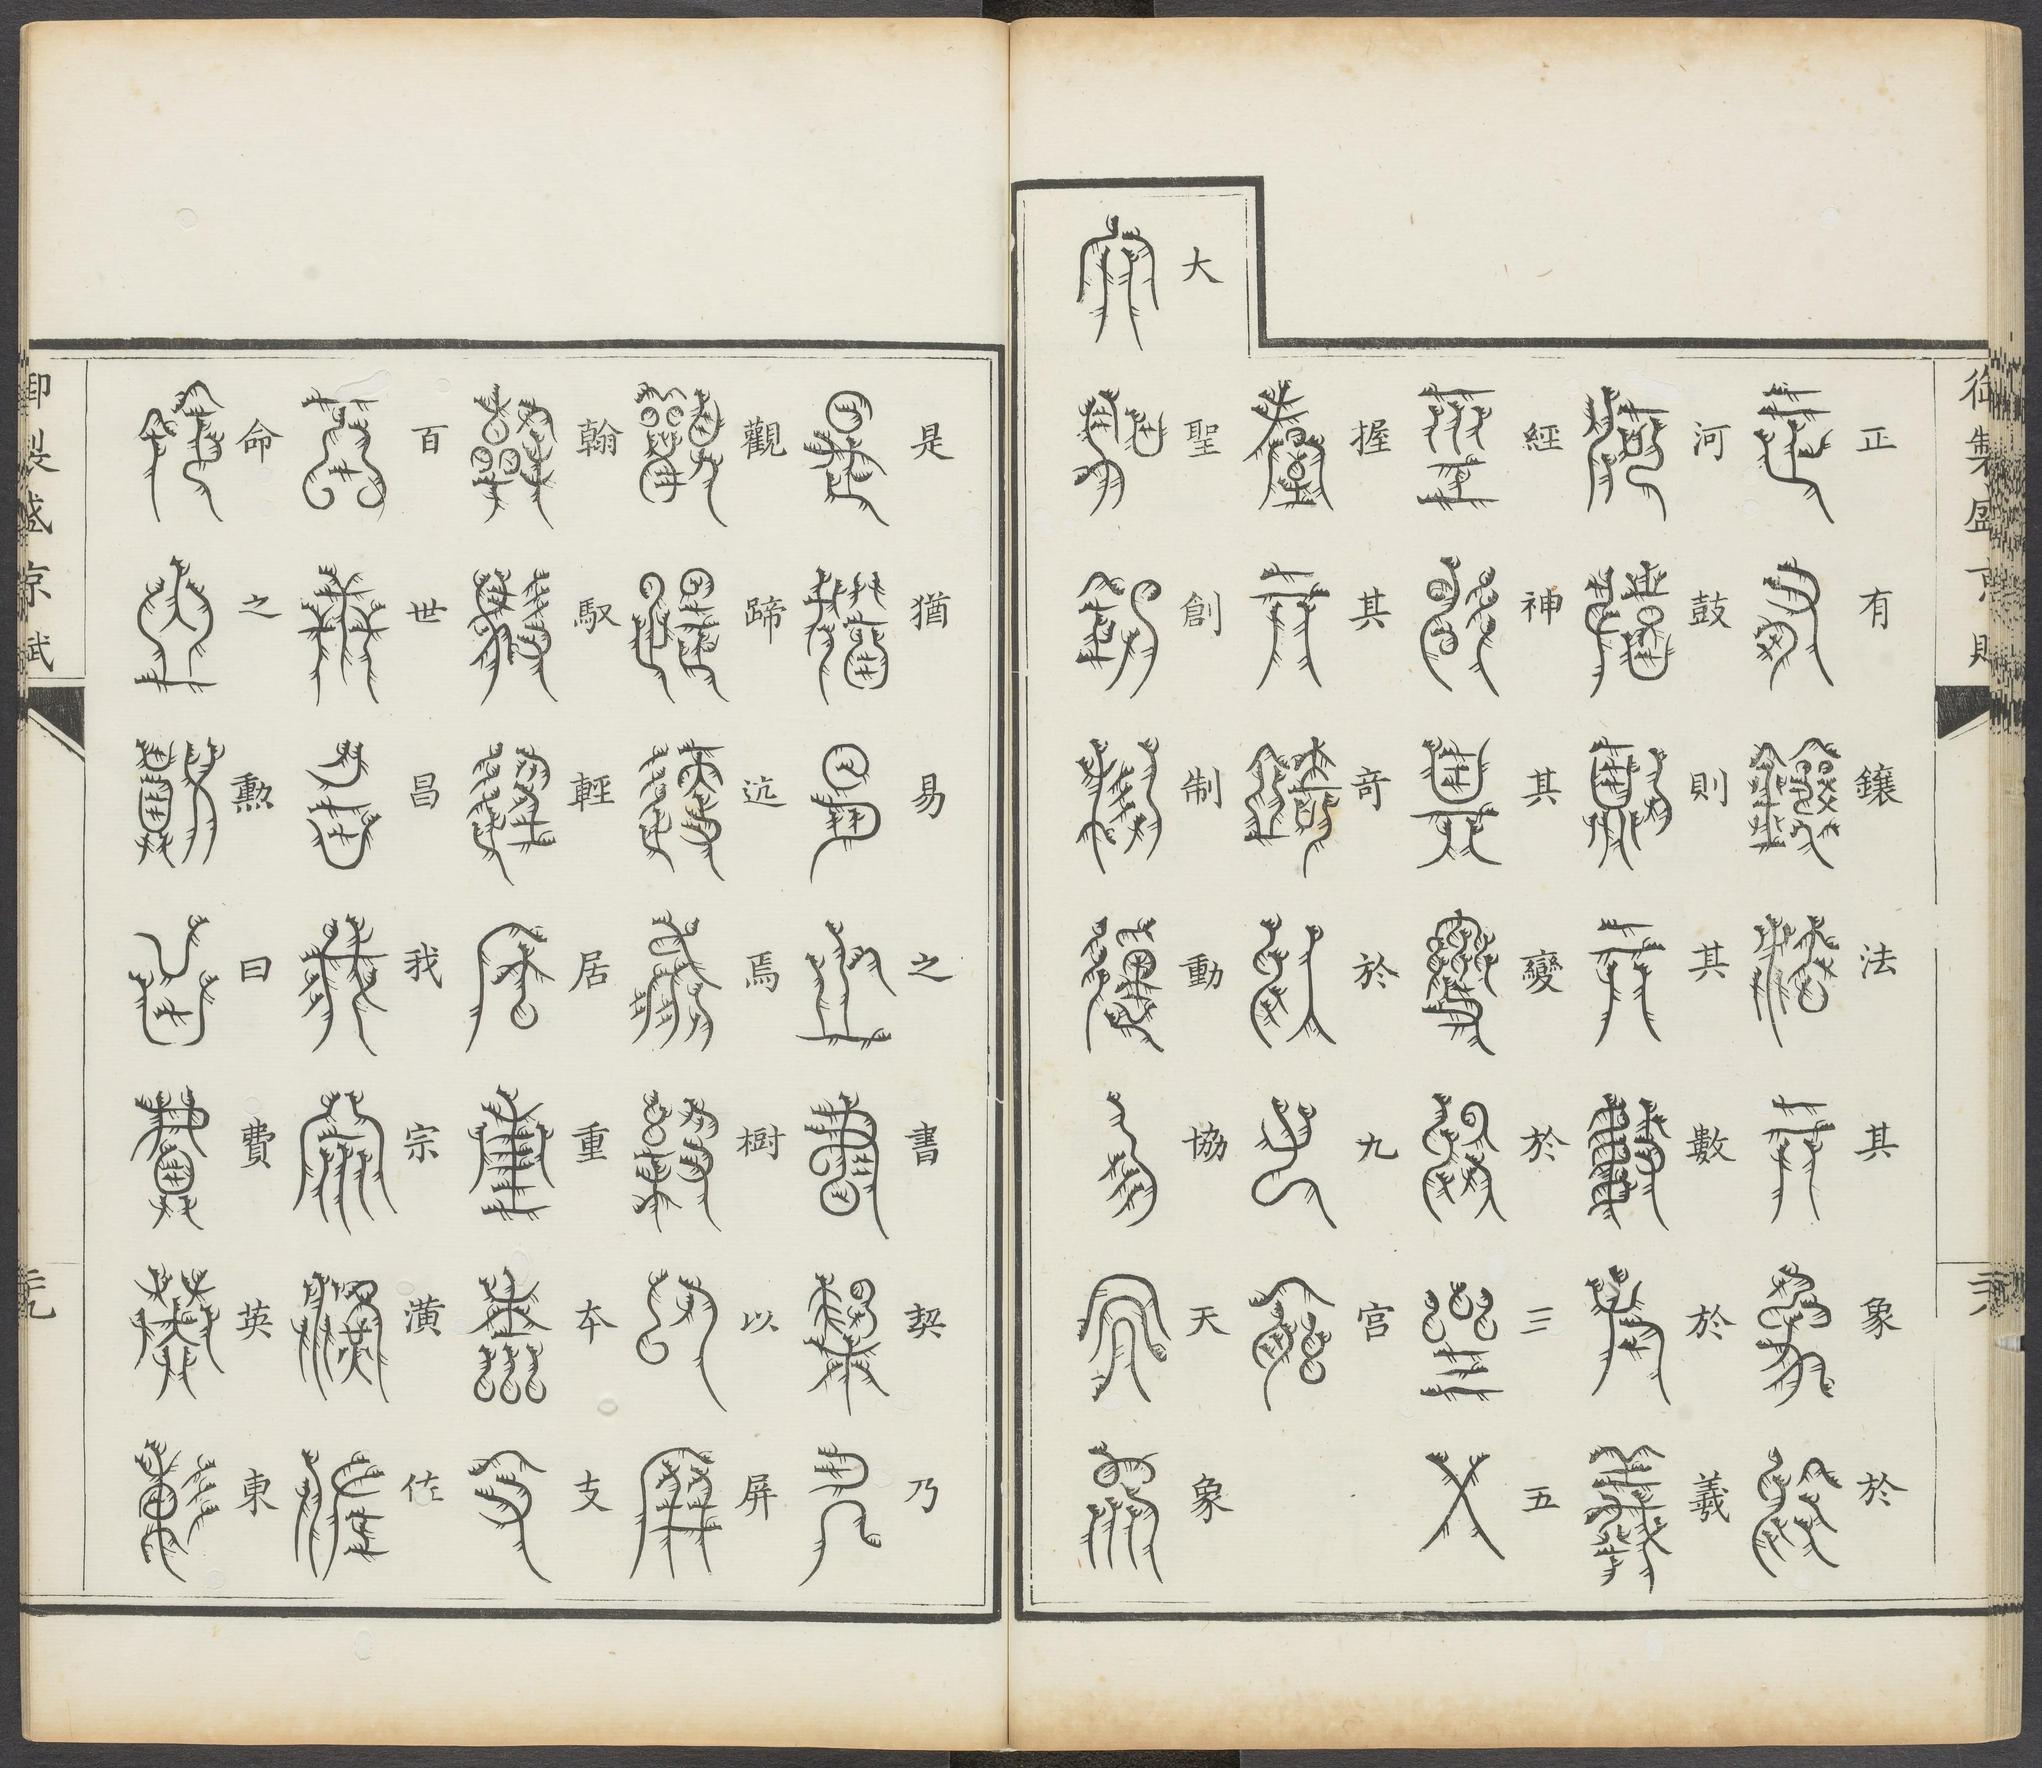 正有鑲法其象於
河鼓則其數於羲
經神其變於三五
握其竒於九宫
大聖創制動協天象
是猶易之書契乃
觀蹄迒焉樹以屏
翰馭輕居重本支
百世昌我宗潢佐
命之勳曰費英東
御製盛京賦